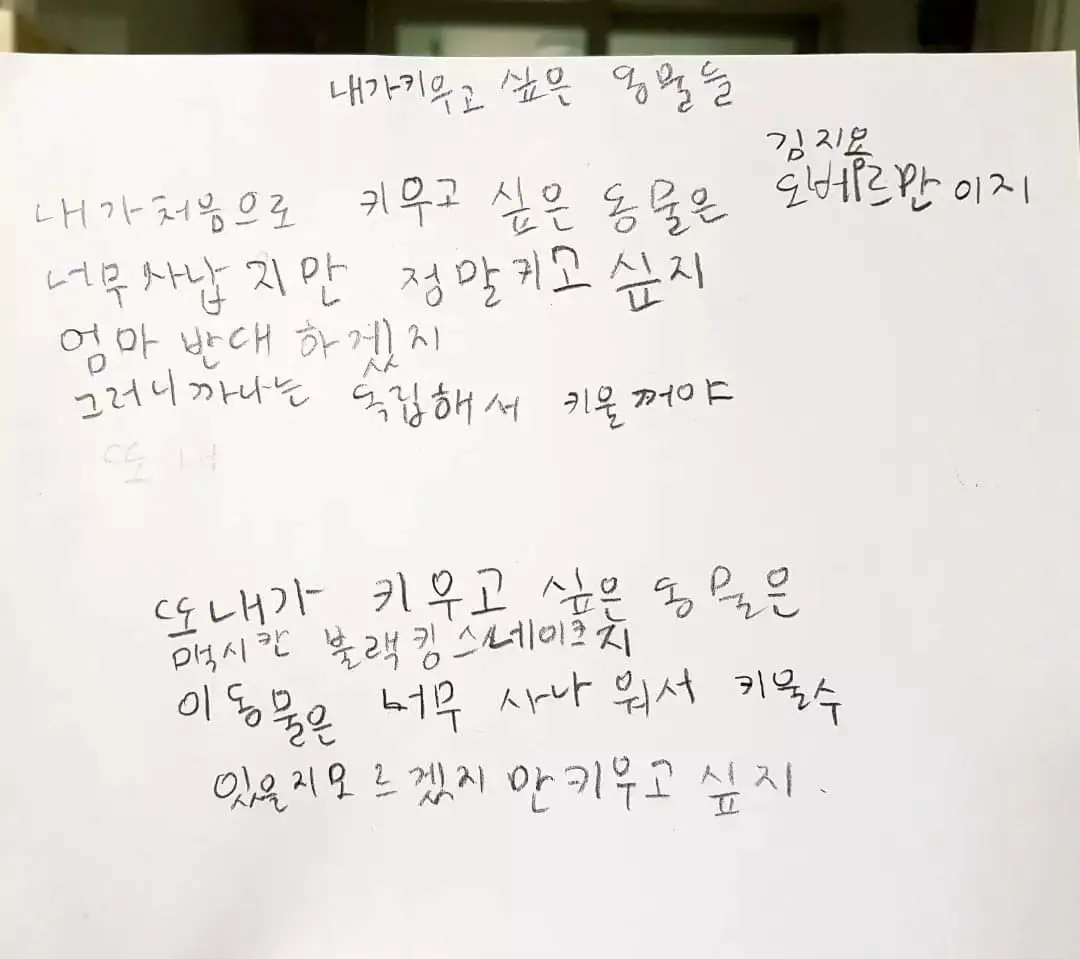 내가키우고 싶은 동물들
김지묘
내가처음으로 키우고 싶은 동물은 도베르만이지
너무사납지만 정말키고싶지
엄마 반대 하겠지
그러니까나는 독립해서 키울꺼야
또 내
또내가 키우고 싶은 동물은
맥시칸 블랙킹스네이크지
이동물은 너무 사나워서 키울수
있을지모르겠지만키우고 싶지.